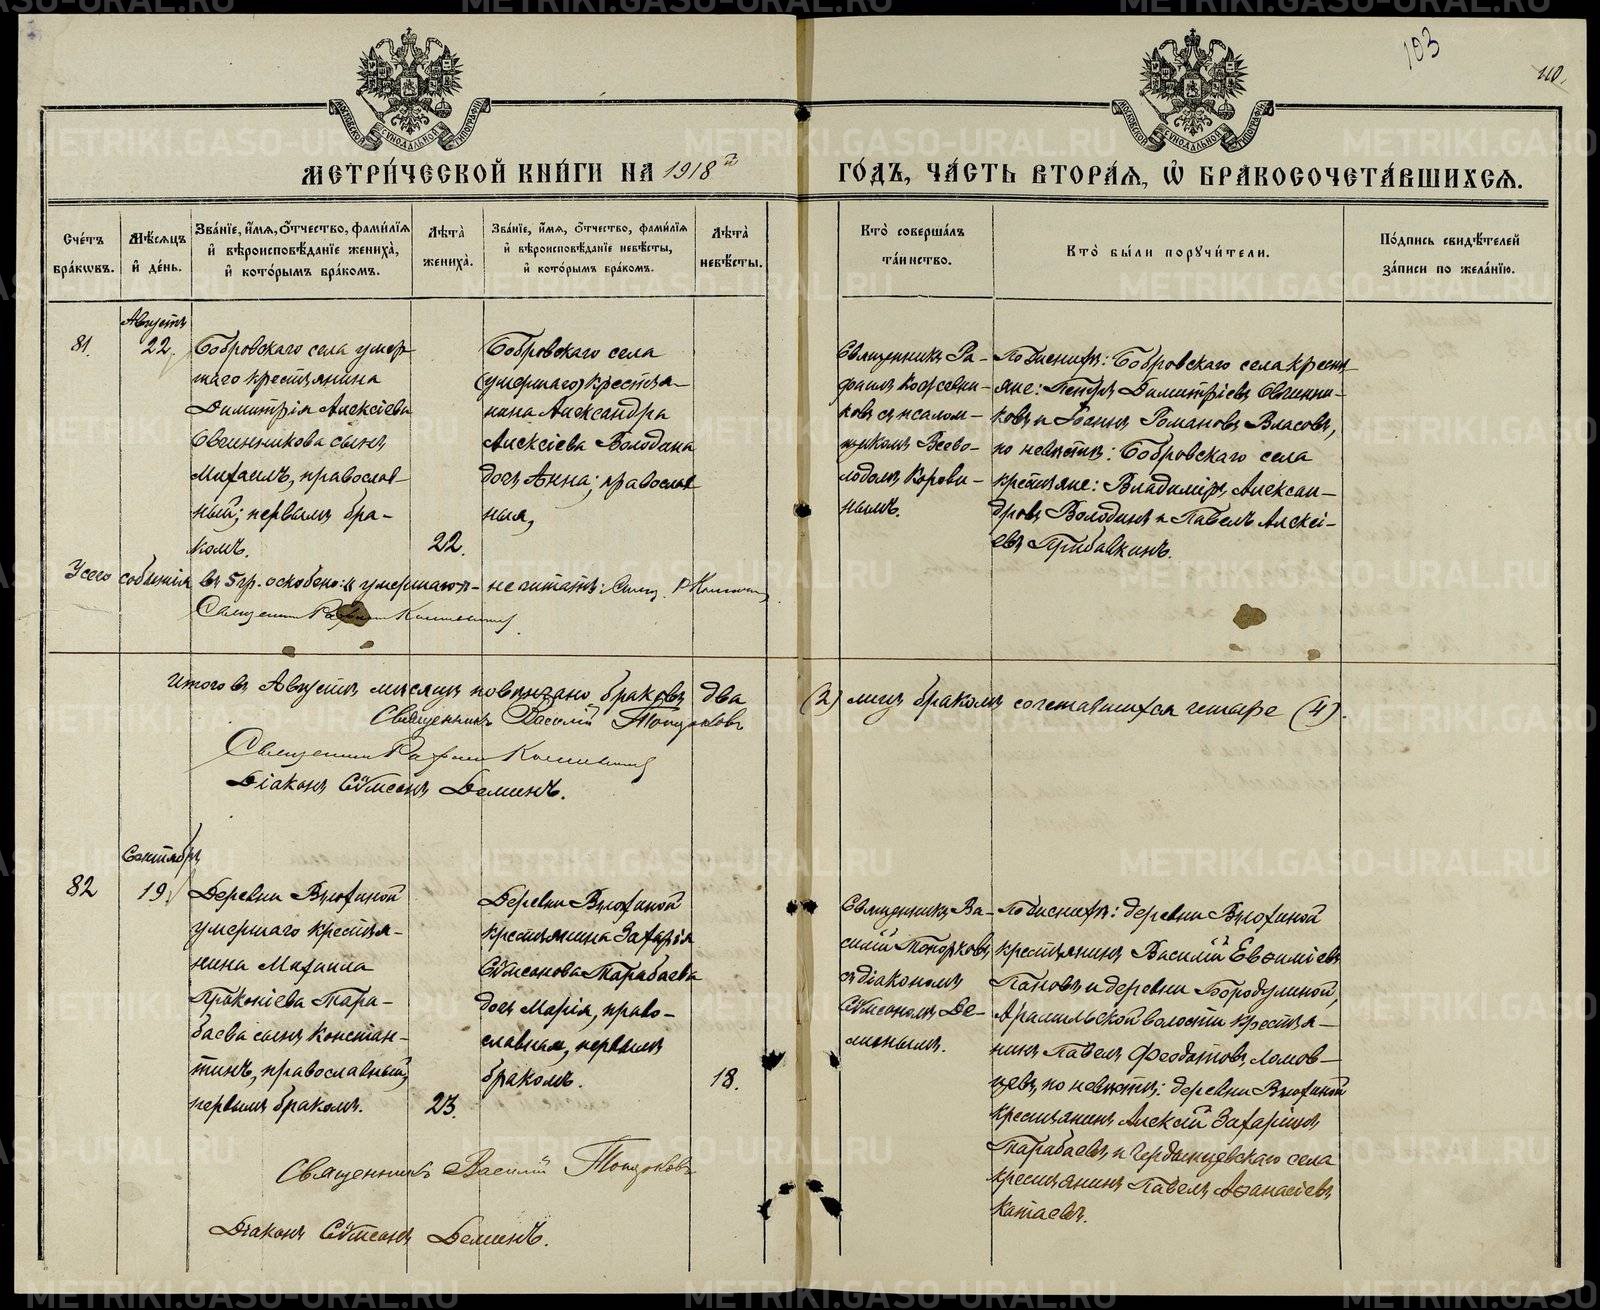 103
110.
МОСКОВСКОЙ СУНОДАЛЬНОЙ ТИПОГРАФІИ
МОСКОВСКОЙ СУНОДАЛЬНОЙ ТИПОГРАФІИ
МЕТРИ́ЧЕСКОЙ КНИ́ГИ НА 1918й ГО́ДЪ, ЧА́СТЬ ВТОРА́Я, Ѡ БРАКОСОЧЕТА́ВШИХСЯ.
Сче́тъ
бра́кωвъ.
Мѣ́сяцъ
и҆ де́нь.
Зва́нїе, и҆́мя, ѻ҆́тчество, фами́лїя
и҆ вѣроисповѣ́данїе жениха̀,
и҆ кото́рымъ бра́комъ.
Лѣ́та̀
жениха̀.
Зва́нїе, и҆́мя, ѻ҆́тчество, фами́лїя
и҆ вѣроисповѣ́данїе невѣ́сты,
и҆ кото́рымъ бра́комъ.
Лѣ́та̀
невѣ́сты.
Кто̀ соверша́лъ
та́инство.
Кто̀ бы́ли поручи́тели.
По́дпись свидѣ́телей
за́писи по жела́нїю.
81.
Августъ
22.
Бобровскаго села умер
шаго крестьянина
Димитрія Алексіева
Овчинникова сынъ
Михаилъ, православ
ный; первымъ бра-
комъ.
22.
Бобровскаго села
(умершаго) крестья-
нина Александра
Алексіева Володина
дочь Анна; православ
ная,
Священникъ Ра-
фаилъ
ковъ съ псалом-
щикомъ Всево-
лодомъ Корови-
нымъ.
По женихѣ: Бобровскаго села крестья
яне: Петръ Димитріевъ Овчинни-
ковъ и Іоаннъ Романовъ Власовъ,
по невѣстѣ: Бобровскаго села
крестьяне: Владиміръ Алексан-
дровъ Володинъ и Павелъ Алексі-
евъ Прибавкинъ.
въ 5 гр. "умершаго"- не читать:
Священникъ
Итого въ Августѣ мѣсяцѣ повѣнчано браковъ два (2) лицъ бракомъ сочетавшихся четыре (4).
Священникъ Василій Топорковъ
Священникъ
Діаконъ Сѵмеонъ Деминъ.
82
Сентябрь
19.
Деревни Вьюхиной
умершаго крестья-
нина Михаила
Прокопіева Тара-
баева сынъ Констан-
тинъ, православный,
первымъ бракомъ.
23.
Деревни Вьюхиной
крестьянина Захарія
Сѵмеонова Тарабаева
дочь Марія, право-
славная, первымъ
бракомъ.
18.
Священникъ Ва-
силій Топорковъ
съ діакономъ
Сѵмеономъ Де-
минымъ.
По женихѣ: деревни Вьюхиной
крестьянинъ Василій Евѳиміевъ
Пановъ и деревни Бородулиной,
Арамильской волости крестья-
нинъ Павелъ Ѳеодотовъ Ломов-
цевъ, по невѣстѣ: деревни Вьюхиной
крестьянинъ Алексій Захаріевъ
Тарабаевъ и Чердынцевскаго села
крестьянинъ Павелъ Аѳанасіевъ
Катаевъ.
Священникъ Василій Топорковъ
Діаконъ Сѵмеонъ Деминъ.
METRIKI.GASO-URAL.RU